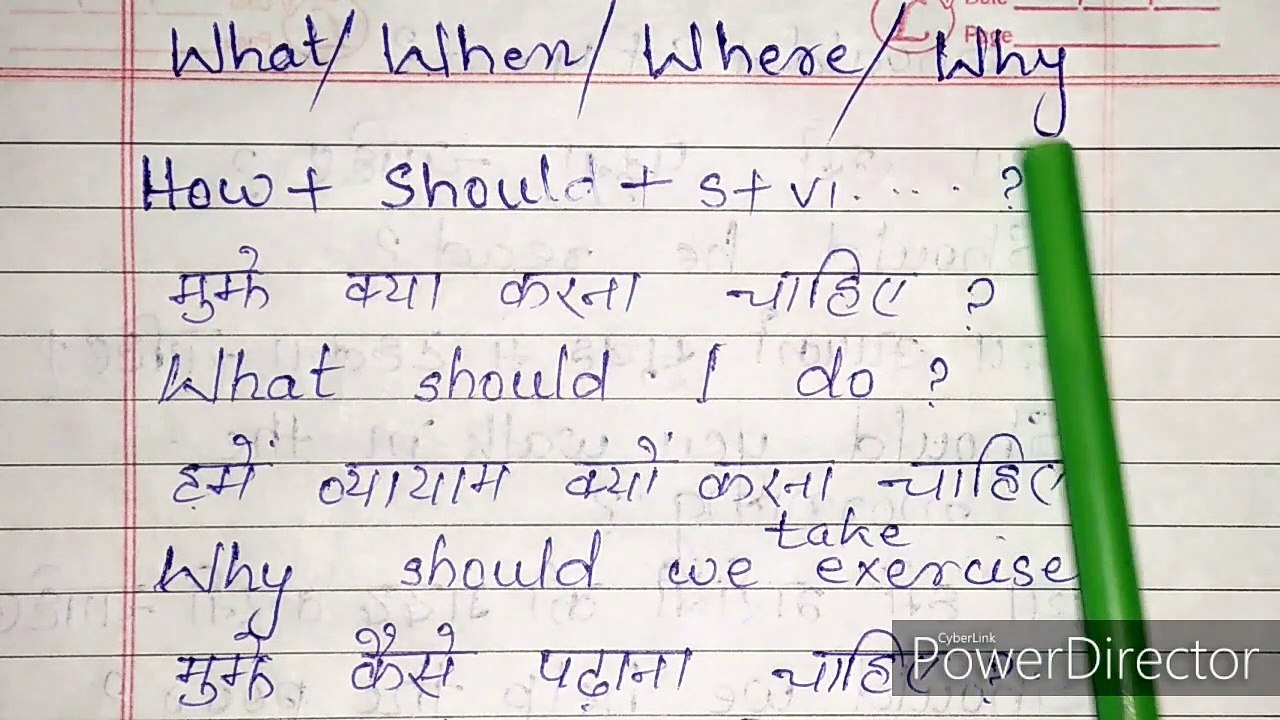 Date
Page
What/ When/ Where/ Why
How + Should + S + V1.... ?
मुझे क्या करना चाहिए ?
What should I do ?
हमें व्यायाम क्यों करना चाहिए
take
Why should we exercise
मुझे कैसे पढ़ाना चाहिए ?
CyberLink
PowerDirector